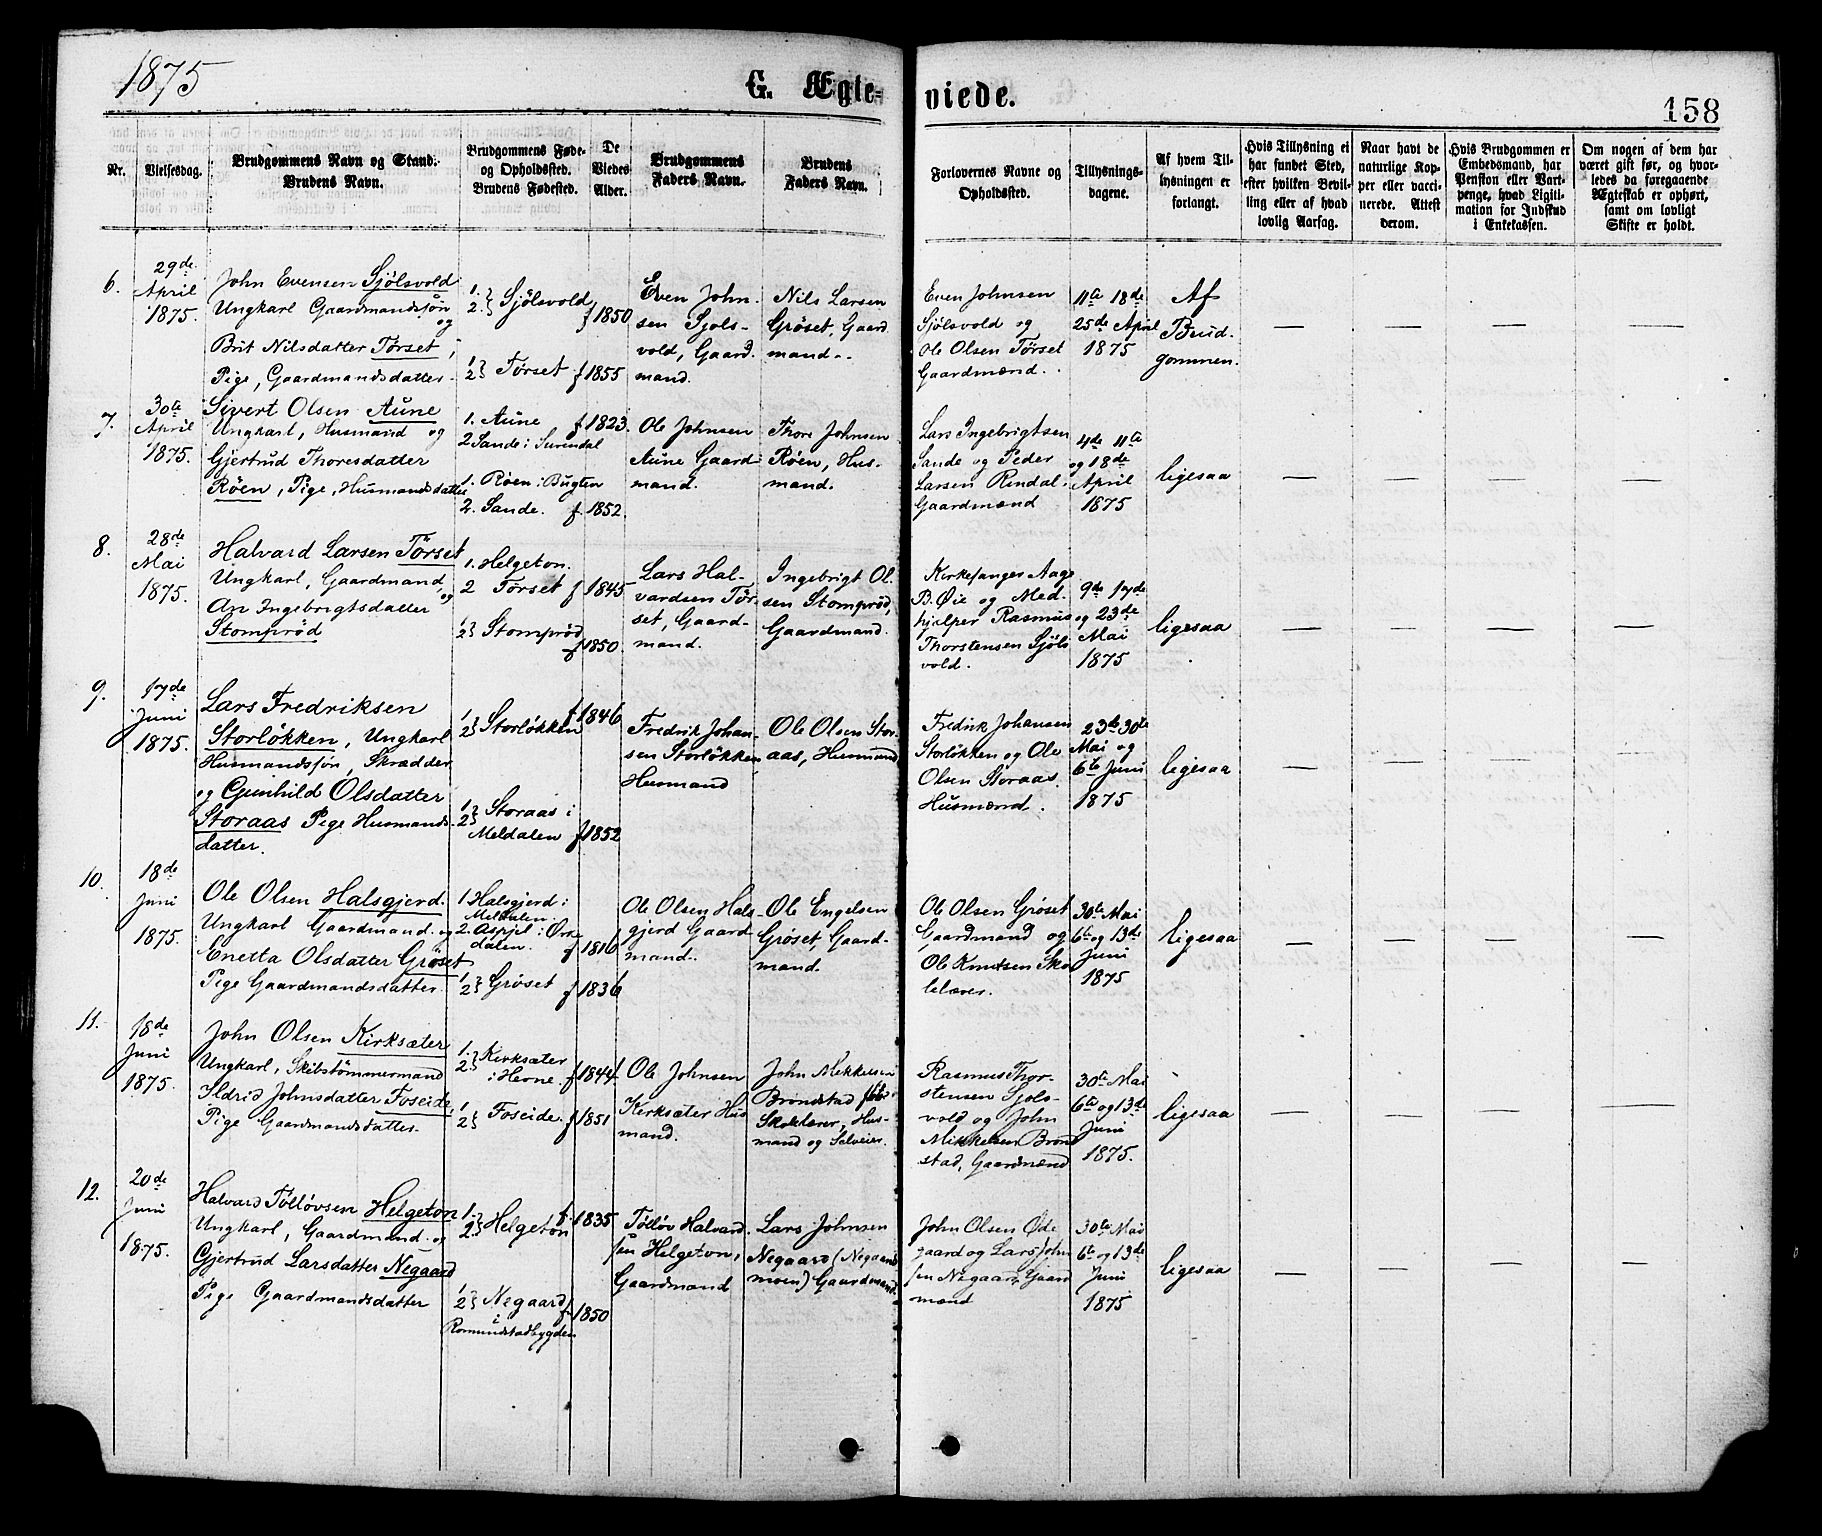 1875
G. Ægte-
viede.
158
Nr.
Vielsesdag.
Brudgommens Navn og Stand.
Brudens Navn.
Brudgommens Føde-
og Opholdssted.
Brudens Fødested.
De
Viedes
Alder.
Brudgommens
Faders Navn.
Brudens
Faders Navn.
Forlovernes Navne og
Opholdssted.
Tillysnings-
dagene.
Af hvem Til-
lysningen er
forlangt.
Hvis Tillysning ei
har fundet Sted,
efter hvilken Bevil-
ling eller af hvad
lovlig Aarsag.
Naar havt de
naturlige Kop-
per eller vacci-
nerede. Attest
derom.
Hvis Brudgommen er
Embedsmand, har
Pension eller Vart-
penge, hvad Ligiti-
mation for Indskud
i Enkekassen.
Om nogen af dem har
været gift før, og hvor-
ledes da foregaaende
Ægteskab er ophørt,
samt om lovligt
Skifte er holdt.
6.
29de
April
1875.
John Evensen Sjölsvold
Ungkarl Gaardmandssøn
og
Brit Nilsdatter Törset,
Pige, Gaardmandsdatter.
1.
2. } Sjölsvold
f 1850
1
2 } Törset f 1855
Even John-
sen Sjols-
vold, Gaard-
mand.
Nils Larsen
Gröset, Gaard
mand.
Even Johnsen
Sjölsvold og
Ole Olsen Törset
Gaardmænd.
11te 18de
25de April
1875
Af
Brud-
gommen.
— — — —
7.
30te
April
1875.
Sivert Olsen Aune
Ungkarl, Husmand og
Gjertrud Thoresdatter
Röen, Pige, Husmandsdatter
1. Aune f 1823.
2 Sande i Surendal
1. Röen i Bugten
2. Sande. f. 1852.
Ole Johnsen
Aune Gaard-
mand.
Thore Johnsen
Röen, Hus-
mand.
Lars Ingebrigtsen
Sande og Peder
Larsen Rindal.
Gaardmænd
4de 11te
og 18de
April
1875
ligesaa
— — — —
8.
28de
Mai
1875.
Halvard Larsen Törset
Ungkarl, Gaardmand,
og
An Ingebrigtsdatter
Stomprød
1. Helgeton.
2 Törset f 1845
1
2 } Stomprød
f 1850.
Lars Hal-
vardsen Tör-
set, Gaard-
mand.
Ingebrigt Ol-
sen Stomprød,
Gaardmand.
Kirkesanger Aage
B. Øie og Med-
hjælper Rasmus
Thorstensen Sjöls
vold.
9de 17de
og 23de
Mai
1875
ligesaa
— — — —
9.
17de
Juni
1875.
Lars Fredriksen
Storløkken, Ungkarl
Husmandssøn, Skrædder
og Gunhild Olsdatter
Storaas Pige Husmands-
datter.
1
2 } Storløkken
f 1846
1
2 } Storaas i
Meldalen f 1852
Fredrik Johan-
sen Storløkken
Husmand
Ole Olsen Stor-
aas, Husmand
Fredrik Johansen
Storløkken og Ole
Olsen Storaas.
Husmænd.
23de 30te
Mai og
6te Juni
1875
ligesaa
— — — —
10.
18de
Juni
1875.
Ole Olsen Halsgjerd.
Ungkarl Gaardmand og
Enetta Olsdatter Gröset
Pige Gaardmandsdatter.
1. Halsgjerd i
Meldalen.
2. Aspjel i Ørke
dalen. f 1816
1
2 } Gröset f 1836
Ole Olsen Hals-
gjerd Gaard-
mand.
Ole Engelsen
Gröset, Gaard-
mand.
Ole Olsen Gröset
Gaardmand og
Ole Knutsen Sko-
lelærer.
30te Mai
6te og 13de
Juni
1875
ligesaa
— — — —
11.
18de
Juni
1875.
John Olsen Kirksæter
Ungkarl, Skibstömmermand
Ildrid Johnsdatter Foseide,
Pige Gaardmandsdatter.
1.
2 } Kirksæter
i Hevne. f 1844
1
2 } Foseide. f 1851
Ole Johnsen
Kirksæter Hus
mand.
John Mikkelsen
Brønstad
Skolelærer, Hus-
mand og Selveier.
Rasmus Thor-
stensen Sjols-
vold og John
Mikkelsen Brøn
stad, Gaardmænd
30te Mai
6te og 13de
Juni
1875.
ligesaa
— — — —
12.
20de
Juni
1875.
Halvard Tölløvsen Helgeton
Ungkarl, Gaardmand og
Gjertrud Larsdatter Negaard
Pige Gaardmandsdatter
1.
2. } Helgeton
f. 1835
1
2 } Negaard
i
Romundstadbygden
f. 1850
Tölløv Halvard
sen Helgeton,
Gaardmand
Lars Johnsen
Negaard (Negaards
moen) Gaardmand.
John Olsen Øde
gaard og Lars John
sen Negaard, Gaard
mænd
30te Mai
6te og 13de
Juni
1875
ligesaa
— — — —